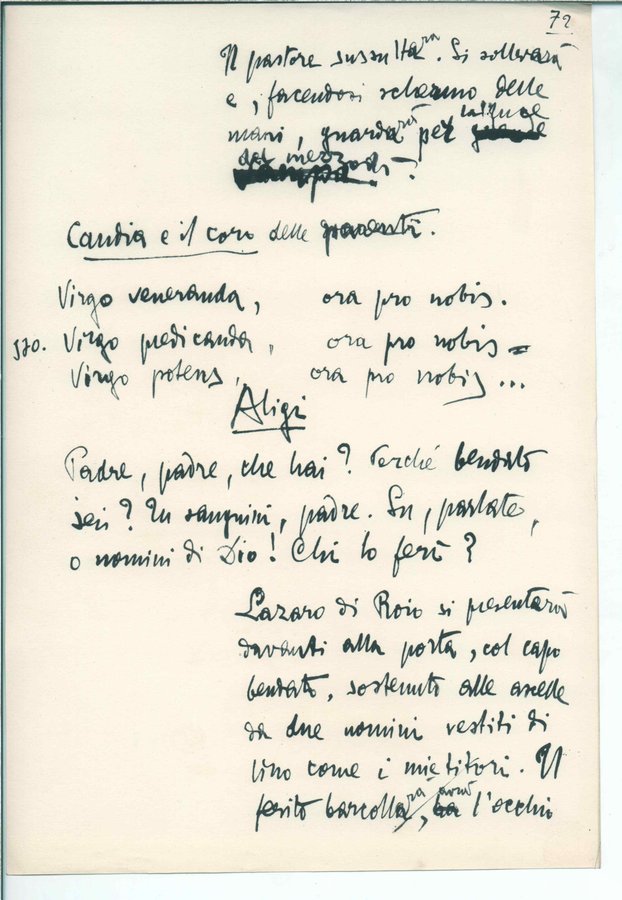 72
Il pastore sussultarà. Si solleverà
e, facendosi schermo delle
mani, guardarà per la luce
del mezzodì.
Candia e il coro delle parenti.
Virgo veneranda, ora pro nobis.
570. Virgo predicanda, ora pro nobis
Virgo potens, ora pro nobis...
Aligi
Padre, padre, che hai? Perché bendato
sei? Tu sanguini, padre. Su, parlate,
o uomini di Dio! Chi lo ferì?
Lazaro di Roio si presenterà
davanti alla porta, col capo
bendato, sostenuto alle ascelle
da due uomini vestiti di
lino come i mietitori. Il
ferito barcollarà, avrà l'occhio